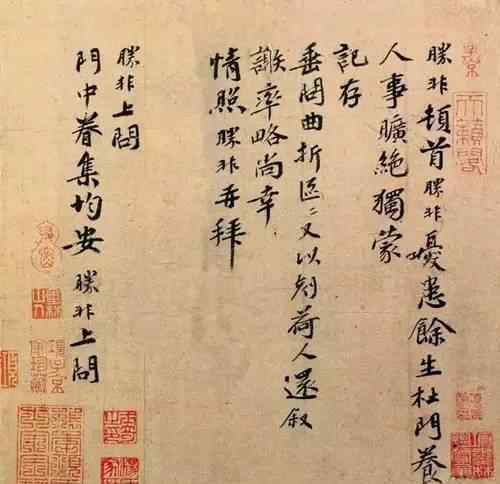 勝非頓首勝非憂患餘生杜門養
人事曠絕獨蒙
記存
垂問曲折區〻又以刻荷人還叙
謝率略尚幸
情照勝非再拜
勝非上問
門中眷集均安勝非上問
天籟閣